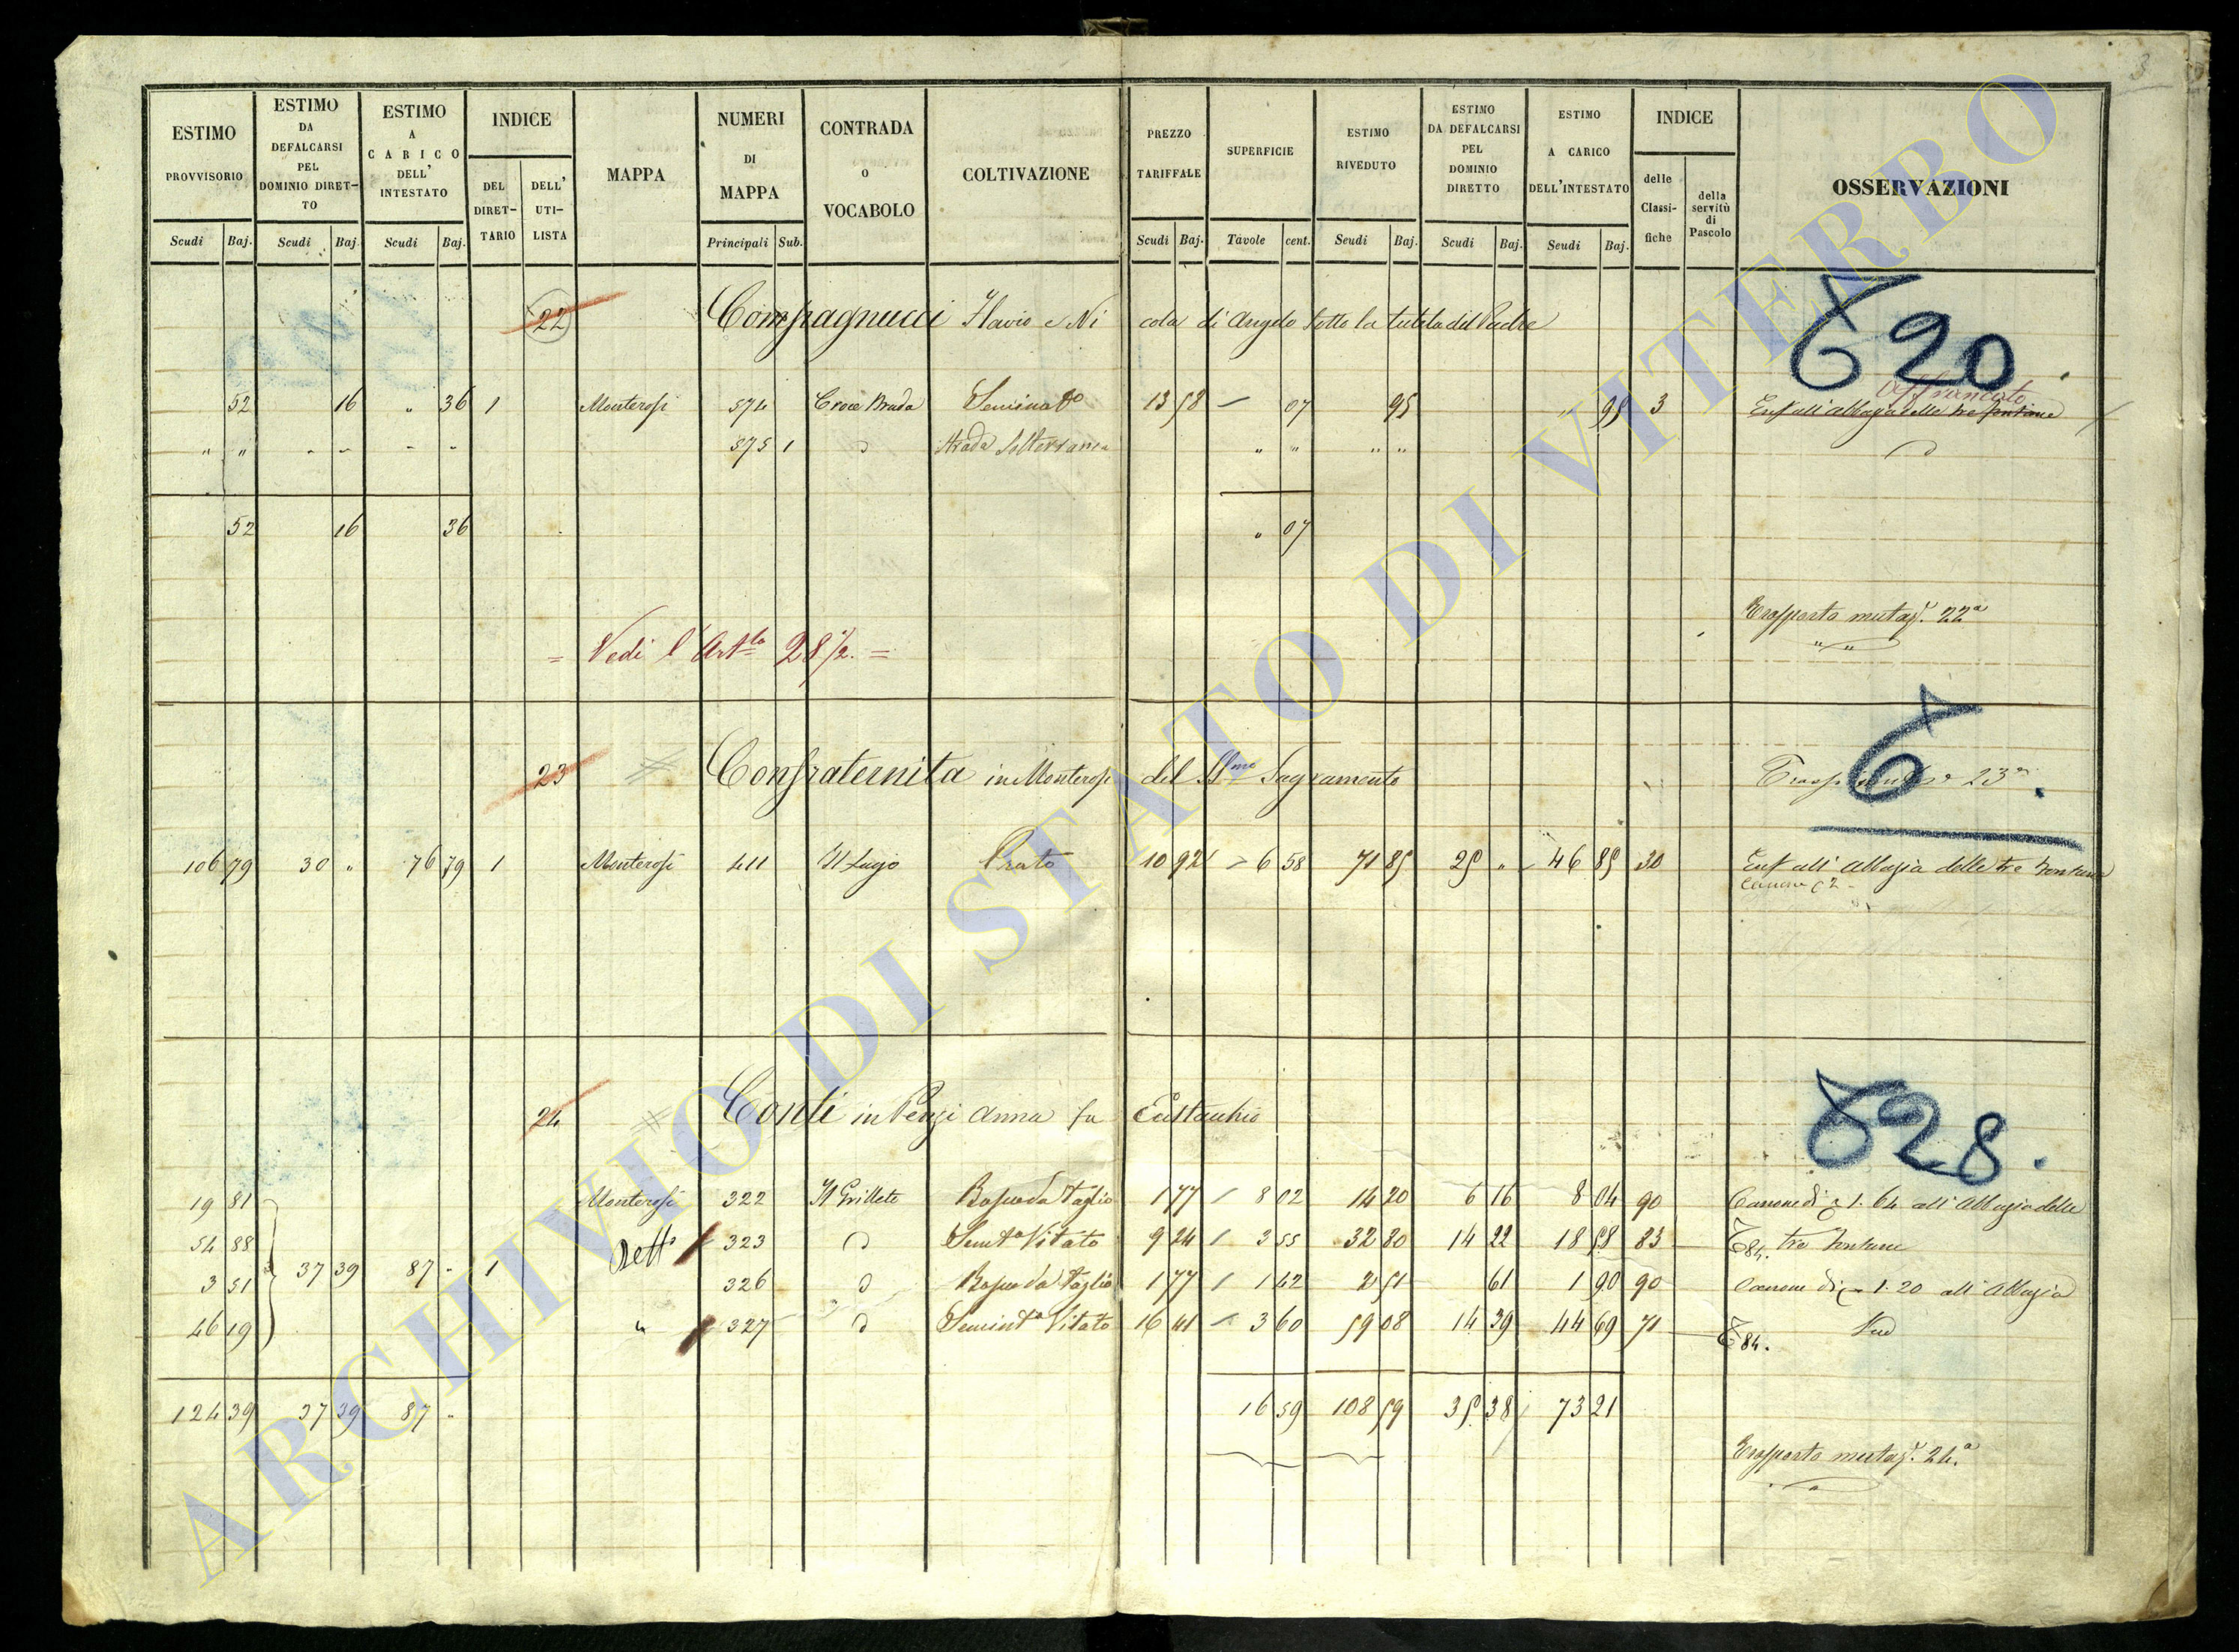 3
ESTIMO PROVVISORIO | ESTIMO DA DEFALCARSI PEL DOMINIO DIRETTO | ESTIMO A CARICO DELL' INTESTATO | INDICE | MAPPA | NUMERI DI MAPPA | CONTRADA O VOCABOLO | COLTIVAZIONE | PREZZO TARIFFALE | SUPERFICIE | ESTIMO RIVEDUTO | ESTIMO DA DEFALCARSI PEL DOMINIO DIRETTO | ESTIMO A CARICO DELL'INTESTATO | INDICE | OSSERVAZIONI
DEL DIRETTARIO | DELL' UTILISTA | delle Classifiche | della servitù di Pascolo
Scudi Baj. | Scudi Baj. | Scudi Baj. | Principali Sub. | Scudi Baj. | Tavole cent. | Scudi Baj. | Scudi Baj. | Scudi Baj.
22 Compagnucci Flavio e Nicola di Angelo sotto la tutela del Padre
620
Affrancato
52 | 16 | " 36 | 1 | Monterosi | 574 | Croce Bruda | Seminato | 13 58 | 07 | 95 | " 95 | 3 | Enf all'abbazia delle tre fontane
" " | " " | " " | 575 1 | Strada Sotterranea | " " | " "
52 | 16 | 36 | " 07
Trasporto mutaz. 22a
= Vedi l'Artlo 28 1/2. =
6
23 Confraternita in Monterosi del SSmo Sagramento | 23a
106 79 | 30 " | 76 79 | 1 | Monterosi | 411 | Il Lago | Prato | 10 92 | 6 58 | 71 85 | 25 " | 46 85 | 30 | Enf all'Abbazia delle tre Fontane
628.
24 Conti in Penzi Anna fu Eustachio
19 81 | Monterosi | 322 | Il Grilleto | Bosco da taglio | 1 77 | 8 02 | 14 20 | 6 16 | 8 04 | 90 | Canone di 1. 64 all'Abbazia delle
54 88 | Detto | 323 | Semto Vitato | 9 24 | 3 55 | 32 80 | 14 22 | 18 58 | 83 | 84. tre Fontane
3 51 | 37 39 | 87 " | 1 | 326 | Bosco da Taglio | 1 77 | 1 42 | 2 51 | 61 | 1 90 | 90 | Canone di 1. 20 all'Abbazia
46 19 | " | 327 | Seminto Vitato | 16 41 | 3 60 | 59 08 | 14 39 | 44 69 | 71 | 84.
124 39 | 37 39 | 87 " | 16 59 | 108 59 | 35 38 | 73 21
Trasporto mutaz. 24a
ARCHIVIO DI STATO DI VITERBO